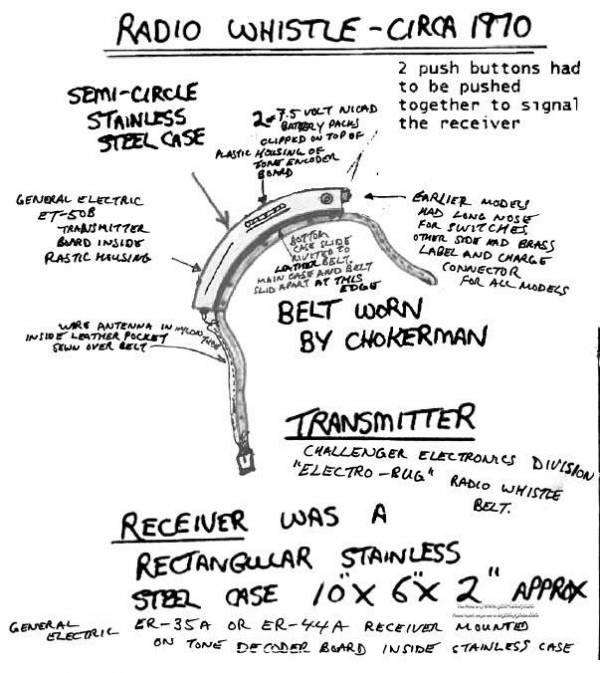 RADIO WHISTLE - CIRCA 1970
2 push buttons had
to be pushed
together to signal
the receiver
SEMI-CIRCLE
STAINLESS
STEEL CASE
2 - 7.5 VOLT NICAD
BATTERY PACKS
CLIPPED ON TOP OF
PLASTIC HOUSING OF
TONE ENCODER
BOARD
GENERAL ELECTRIC
ET-50B
TRANSMITTER
BOARD INSIDE
PLASTIC HOUSING
EARLIER MODELS
HAD LONG NOSE
FOR SWITCHES
OTHER SIDE HAD BRASS
LABEL AND CHARGE
CONNECTOR
FOR ALL MODELS
BOTTOM
CASE SLIDE
RIVETED TO
LEATHER BELT.
MAIN CASE AND BELT
SLID APART AT THIS
EDGE
BELT WORN
BY CHOKERMAN
WIRE ANTENNA IN NYLON TUBE
INSIDE LEATHER POCKET
SEWN OVER BELT
TRANSMITTER
CHALLENGER ELECTRONICS DIVISION
"ELECTRO-BUG" RADIO WHISTLE
BELT.
RECEIVER WAS A
RECTANGULAR STAINLESS
STEEL CASE 10" X 6" X 2" APPROX
GENERAL ELECTRIC ER-35A OR ER-44A RECEIVER MOUNTED
ON TONE DECODER BOARD INSIDE STAINLESS CASE